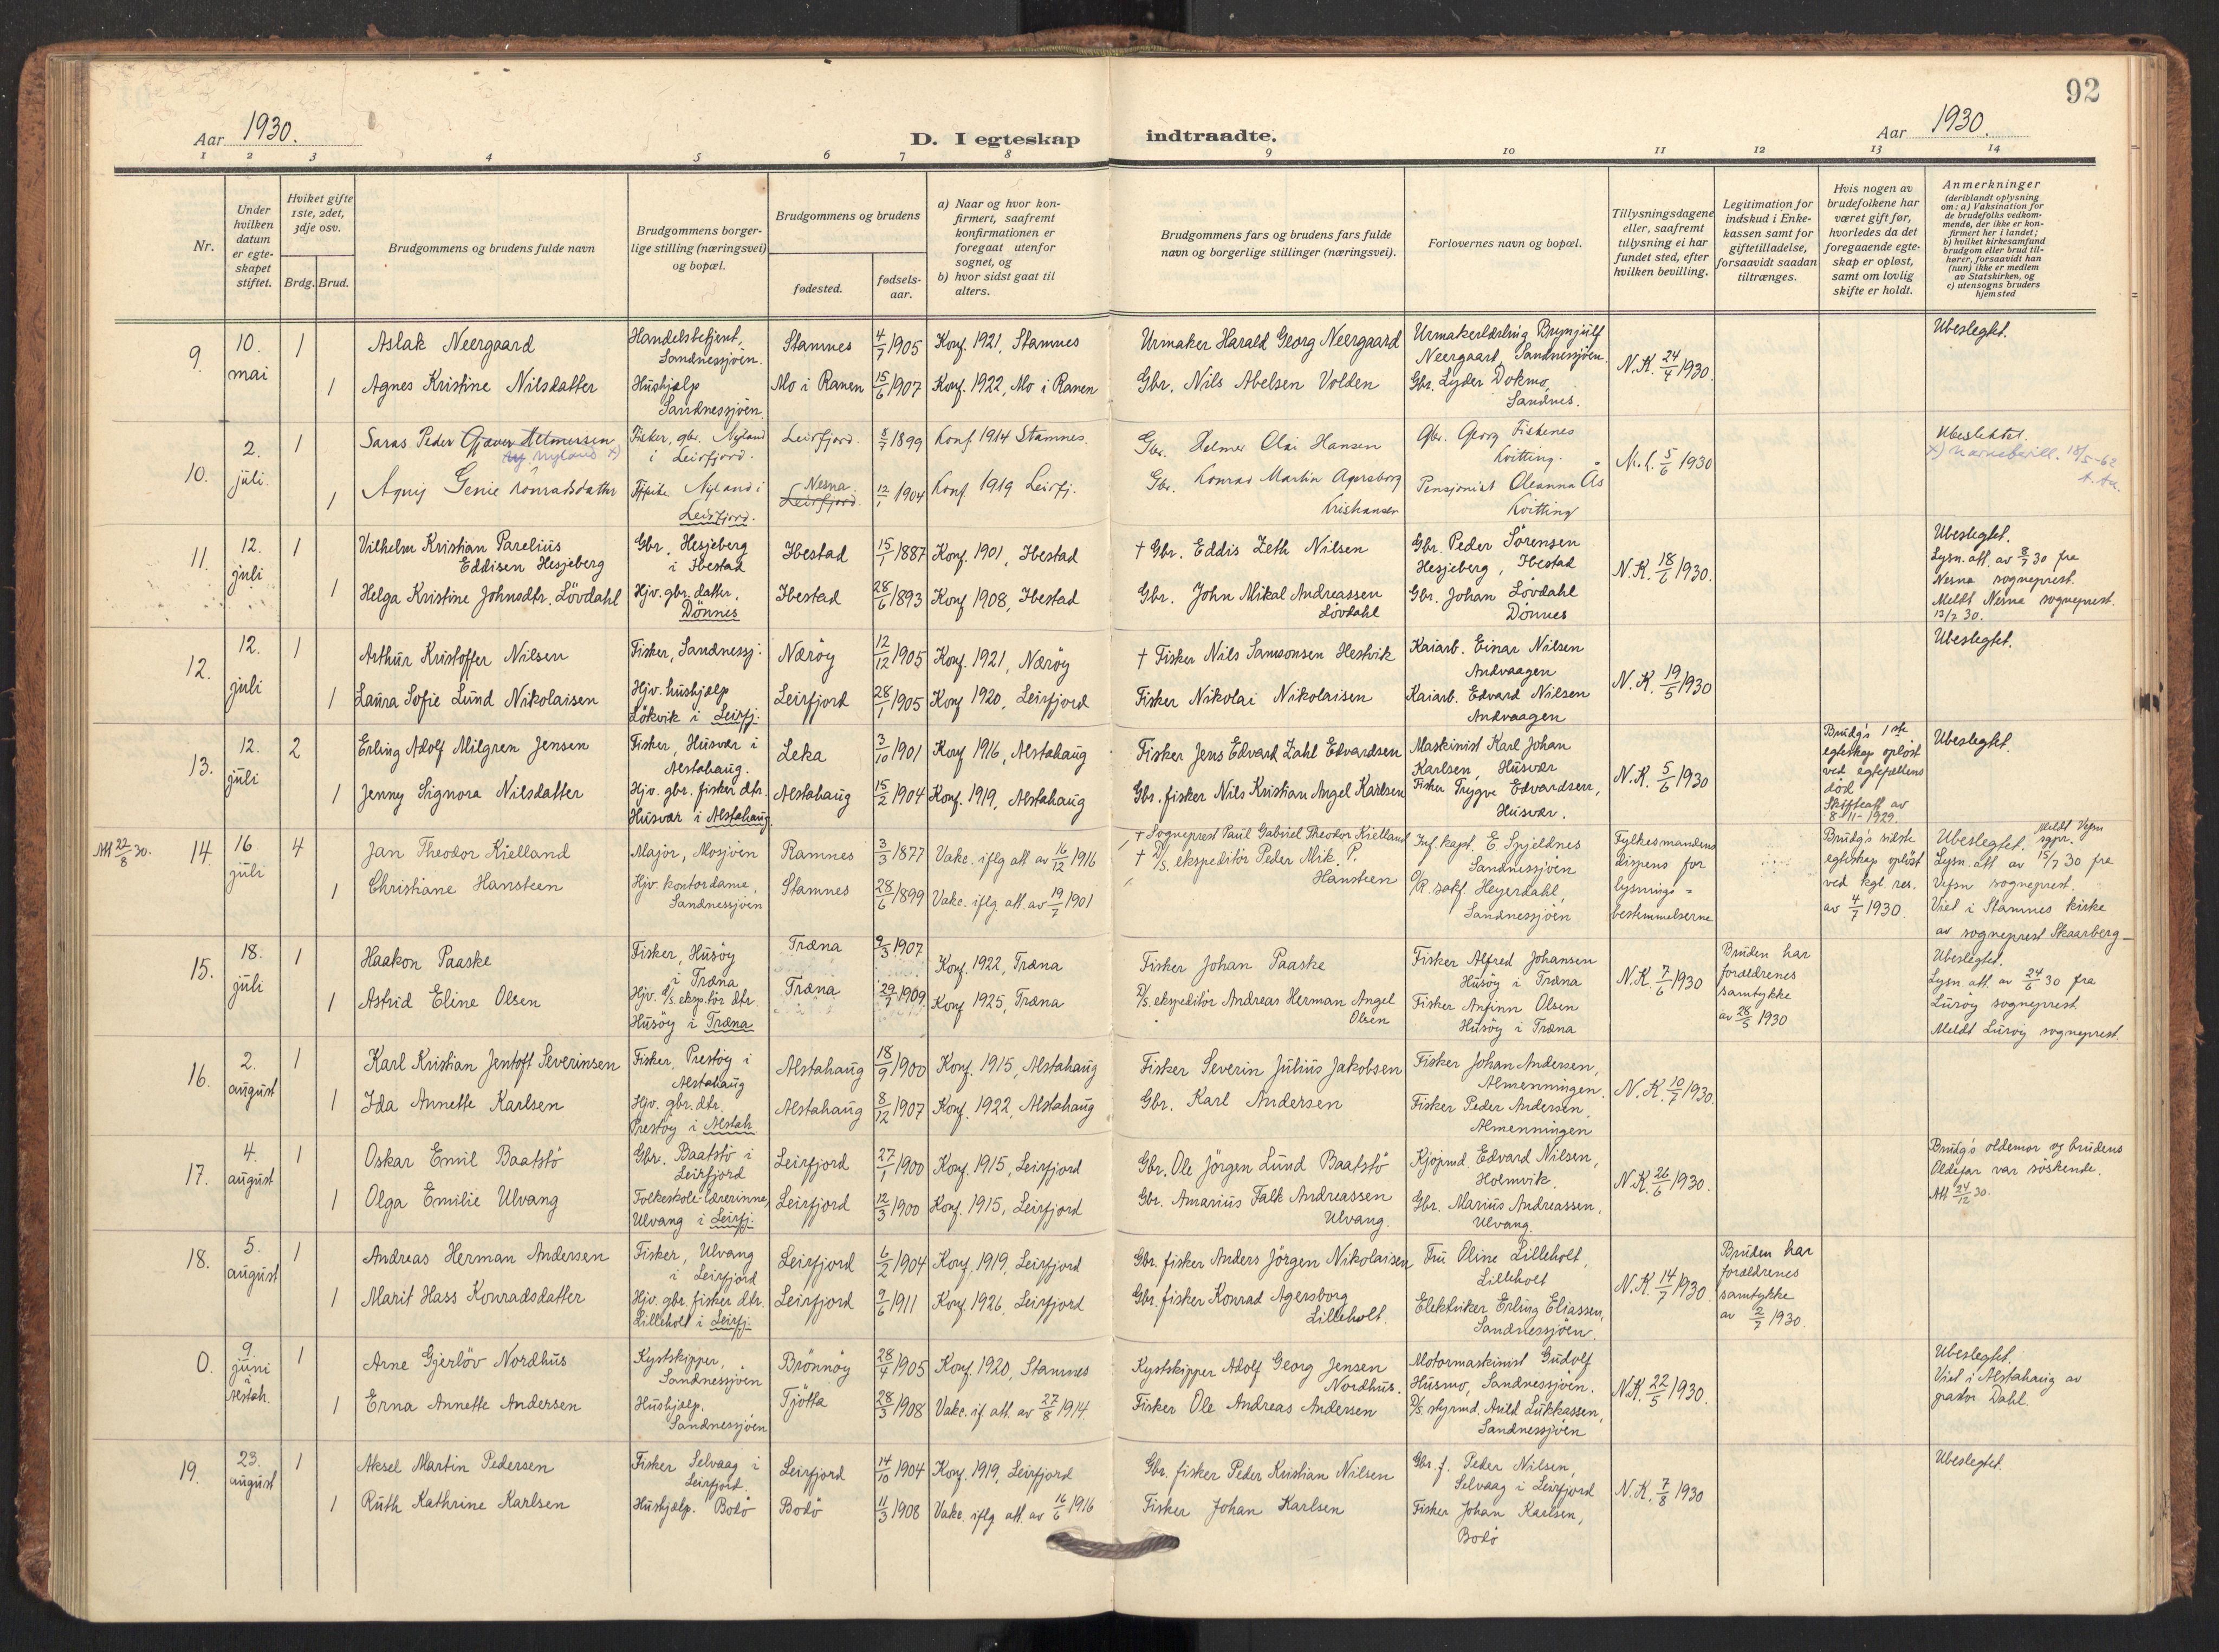 92
Aar 1930.
D. I egteskap indtraadte.
Aar 1930.
1 2 3 4 5 6 7 8 9 10 11 12 13 14
Nr.
Under hvilken datum er egteskapet stiftet.
Hviket gifte 1ste, 2det, 3dje osv.
Brdg. Brud.
Brudgommens og brudens fulde navn
Brudgommens borgerlige stilling (næringsvei) og bopæl.
Brudgommens og brudens
fødested.
fødselsaar.
a) Naar og hvor konfirmert, saafremt konfirmationen er foregaat utenfor sognet, og
b) hvor sidst gaat til alters.
Brudgommens fars og brudens fars fulde navn og borgerlige stillinger (næringsvei).
Forlovernes navn og bopæl.
Tillysningsdagene eller, saafremt tillysning ei har fundet sted, efter hvilken bevilling.
Legitimation for indskud i Enkekassen samt for giftetilladelse, forsaavidt saadan tiltrænges.
Hvis nogen av brudefolkene har været gift før, hvorledes da det foregaaende egteskap er opløst, samt om lovlig skifte er holdt.
Anmerkninger (deriblandt oplysning om: a) Vaksination for de brudefolks vedkommende, der ikke er konfirmert her i landet; b) hvilket kirkesamfund brudgom eller brud tilhører, forsaavidt han (hun) ikke er medlem av Statskirken, og c) utensogns bruders hjemsted
9. 10. mai 1 Aslak Neergaard Handelsbetjent, Sandnessjøen. Stamnes 4/7 1905 Konf. 1921, Stamnes Urmaker Harald Georg Neergaard Urmakerlærling Brynjulf Neergaard, Sandnessjøen. N.K. 24/4 1930. Ubeslegtet.
1 Agnes Kristine Nilsdatter Hushjælp Sandnessjøen. Mo i Ranen 15/6 1907 Konf. 1922, Mo i Ranen Gbr. Nils Abelsen Volden Gbr. Lyder Dokmo, Sandnes.
10. 2. juli. 1 Saras Peder Gjæver Helmersen Nyland x) Fisker, gbr. Nyland i Leirfjord. Leirfjord. 8/7 1899 Konf 1914 Stamnes. Gbr. Helmer Olai Hansen Gbr. Georg Fiskenes Kvitting. N.K. 5/6 1930 Ubeslektet. x) Navnebevill. 18/5-62
1 Genie Konradsdatter Nyland i Leirfjord. Nesna Leirfjord. 12/1 1904 Konf 1919 Leirfj. Gbr. Konrad Martin Agersborg Kristiansen Pensjonist Oleanna Ås Kvitting
11. 12. juli 1 Vilhelm Kristian Parelius Eddisen Hesjeberg Gbr. Hesjeberg i Ibestad Ibestad 15/1 1887 Konf. 1901, Ibestad † Gbr. Eddis Zeth Nilsen Gbr. Peder Sørensen Hesjeberg, Ibestad N.K. 18/6 1930. Ubeslegtet. Lysn. att. av 8/7 30 fra Nesna sogneprest. Meldt Nesna sogneprest. 13/7 30.
1 Helga Kristine Johnsdtr. Lövdahl Hjv. gbr. datter, Dönnes Ibestad 28/6 1893 Konf 1908, Ibestad Gbr. John Mikal Andreassen Lövdahl Gbr. Johan Lövdahl Dönnes
12. 12. juli 1 Arthur Kristoffer Nilsen Fisker, Sandnessj. Nærøy 12/12 1905 Konf. 1921, Nærøy † Fisker Nils Samsonsen Hestvik Kaiarb. Einar Nilsen Andvaagen N.K. 19/5 1930 Ubeslegtet.
1 Laura Sofie Lund Nikolaisen Hjv. hushjælp Løkvik i Leirfj. Leirfjord 28/1 1905 Konf 1920, Leirfjord Fisker Nikolai Nikolaisen Kaiarb. Edvard Nilsen Andvaagen
13. 12. juli 2 Erling Adolf Milgren Jensen Fisker, Husvær i Alstahaug. Leka 3/10 1901 Konf 1916, Alstahaug Fisker Jens Edvard Zahl Edvardsen Maskinist Karl Johan Karlsen, Husvær N.K. 5/6 1930 Brudg's 1ste egteskap opløst ved egtefellens død Skifteatt. av 8-11-1929. Ubeslegtet.
1 Jenny Signora Nilsdatter Hjv. gbr. fisker dtr. Husvær i Alstahaug. Alstahaug 15/2 1904 Konf. 1919, Alstahaug Gbr. fisker Nils Kristian Angel Karlsen Fisker Trygve Edvardsen, Husvær.
Att 22/8 30. 14 16. juli 4 Jan Theodor Kielland Major, Mosjøen Ramnes 3/3 1877 Vakc. iflg att av 16/12 1916 † Sogneprest Paul Gabriel Theodor Kielland Inf. kapt. E. Spjeldnes Sandnessjøen Fylkesmandens dispens for lysningsbestemmelserne Brudg's sidste egteskap opløst ved kgl. res. av 4/7 1930. Ubeslegtet. Meldt Vefsn sgpr. Lysn. att. av 15/7 30 fra Vefsn sogneprest. Viet i Stamnes kirke av sogneprest Skaarberg
1 Christiane Hansteen Hjv. kontordame, Sandnessjøen Stamnes 28/6 1899 Vakc. iflg. att. av 19/7 1901 † D/S. ekspeditör Peder Mik. P. Hansteen O/R. sakf. Heyerdahl, Sandnessjøen
15. 18. juli 1 Haakon Paaske Fisker, Husøy i Træna Træna 9/3 1907 Konf. 1922, Træna Fisker Johan Paaske Fisker Alfred Johansen Husøy i Træna N.K. 7/6 1930 Bruden har forældrenes samtykke av 28/5 1930 Ubeslegtet. Lysn att. av 24/6 30 fra Lurøy sogneprest. Meldt Lurøy sogneprest.
1 Astrid Eline Olsen Hjv. d/s. eksp.tör dtr. Husøy i Træna Træna 29/7 1909 Konf 1925, Træna D/S. ekspeditör Andreas Herman Angel Olsen Fisker Anfinn Olsen Husøy i Træna
16. 2. august 1 Karl Kristian Jentoft Severinsen Fisker, Prestøy i Alstahaug Alstahaug 18/9 1900 Konf. 1915, Alstahaug Fisker Severin Julius Jakobsen Fisker Johan Andersen, Almenningen. N.K. 10/7 1930.
1 Ida Annette Karlsen Hjv. gbr. dtr. Prestøy i Alstah. Alstahaug 8/12 1907 Konf. 1922, Alstahaug Gbr. Karl Andersen Fisker Peder Andersen, Almenningen
17. 4. august 1 Oskar Emil Baatstø Gbr. Baatstø i Leirfjord Leirfjord 27/1 1900 Konf. 1915, Leirfjord Gbr. Ole Jörgen Lund Baatstø Kjöpmd. Edvard Nilsen, Holmvik. N.K. 26/6 1930. Brudg's oldemor og brudens Oldefar var söskende. Att 24/12 30.
1 Olga Emilie Ulvang Folkeskole-lærerinne, Ulvang i Leirfj. Leirfjord 12/3 1900 Konf. 1915, Leirfjord Gbr. Amarius Falk Andreassen Ulvang. Gbr. Marius Andreassen, Ulvang
18. 5. august 1 Andreas Herman Andersen Fisker, Ulvang i Leirfjord Leirfjord 6/2 1904 Konf. 1919, Leirfjord Gbr. fisker Anders Jörgen Nikolaisen Fru Oline Lilleholt, Lilleholt N.K. 14/7 1930. Bruden har forældrenes samtykke av 2/7 1930.
1 Marit Hass Konradsdatter Hjv. gbr. fisker dtr. Lilleholt i Leirfj. Leirfjord 9/6 1911 Konf. 1926, Leirfjord Gbr. fisker Konrad Agersborg Lilleholt. Elektriker Erling Eliassen, Sandnessjøen.
0. 9. juni i Alstah. 1 Arne Gjerløv Nordhus Kystskipper, Sandnessjøen Brönnøy 28/4 1905 Konf. 1920, Stamnes Kystskipper Adolf Georg Jensen Nordhus. Motormaskinist Gudolf Husmo, Sandnessjøen. N.K. 22/5 1930. Ubeslegtet. Viet i Alstahaug av pastor Dahl.
1 Erna Annette Andersen Hushjælp. Sandnessjøen Tjøtta 28/3 1908 Vakc. if. att. av 27/8 1914. Fisker Ole Andreas Andersen D/S. styrmd. Arild Lukkassen, Sandnessjøen
19. 23. august 1 Aksel Martin Pedersen Fisker Selvaag i Leirfjord. Leirfjord 14/10 1904 Konf. 1919, Leirfjord Gbr. fisker Peder Kristian Nilsen Gbr. f. Peder Nilsen, Selvaag i Leirfjord N.K. 7/8 1930 Ubeslegtet.
1 Ruth Kathrine Karlsen Hushjælp. Bodø Bodø 11/3 1908 Vakc. iflg att. av 16/6 1916 Fisker Johan Karlsen Fisker Johan Karlsen, Bodø